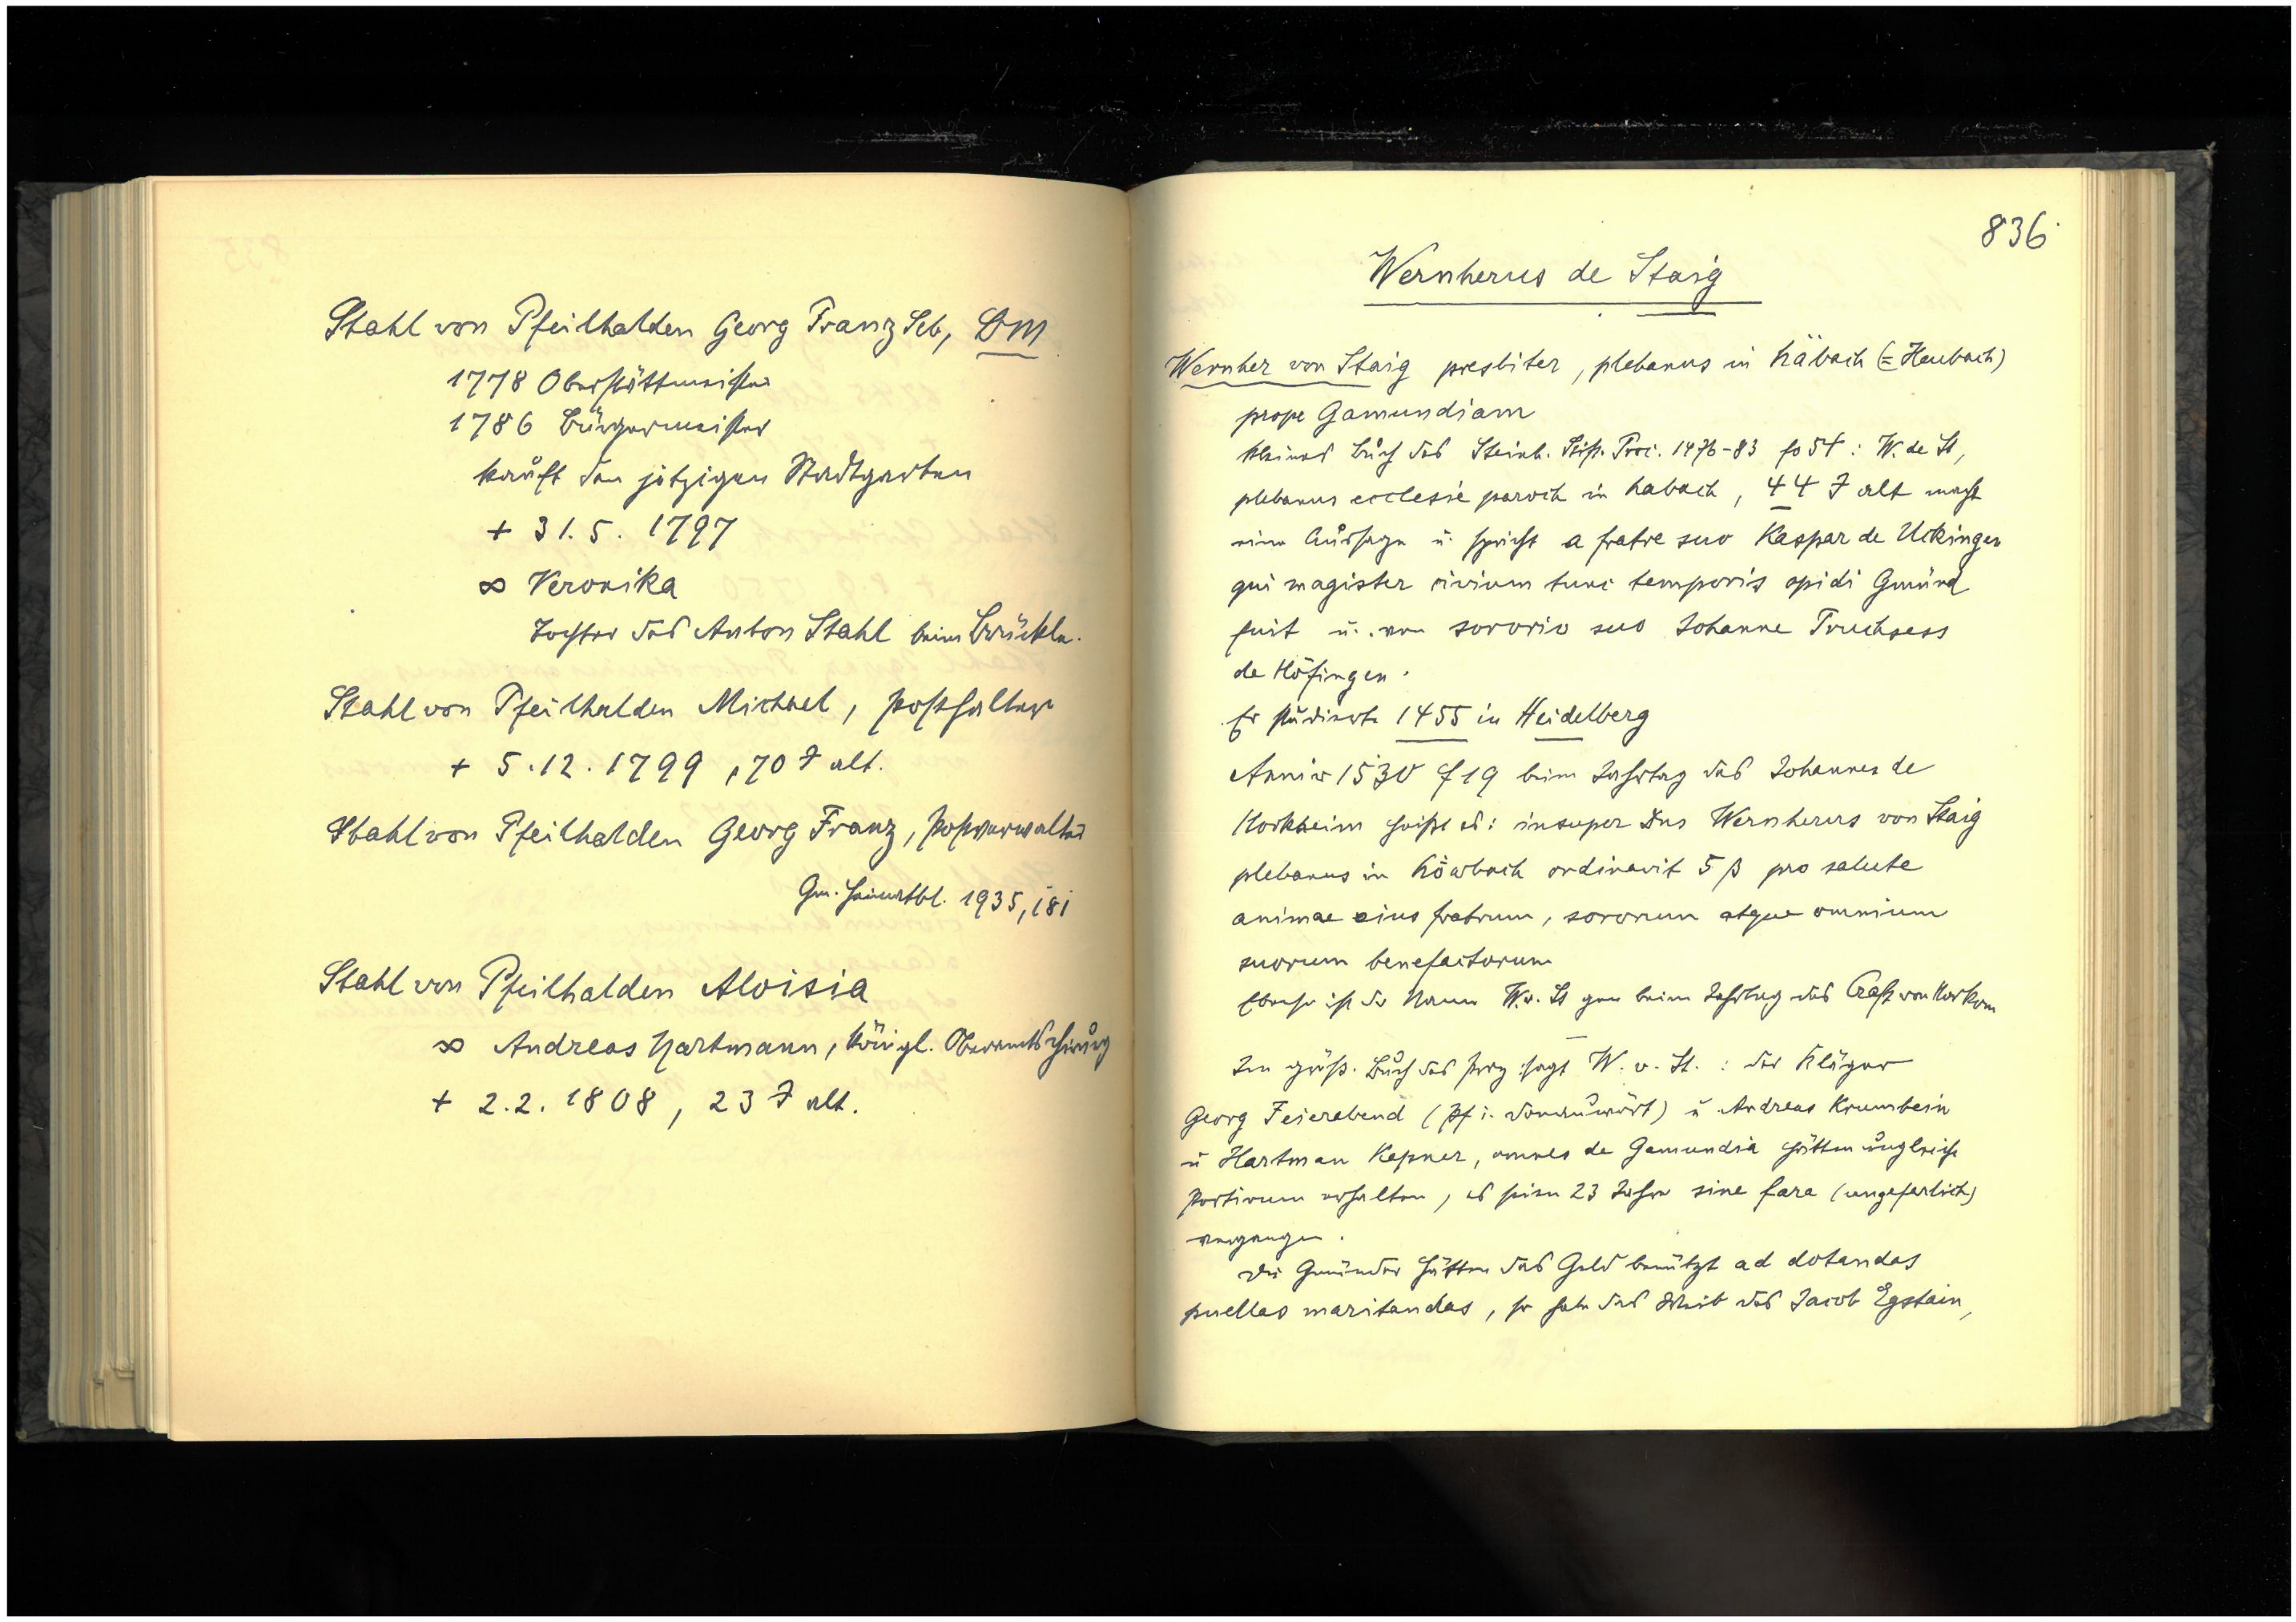 Stahl von Pfeilhalden Georg Franz Seb, DM
1778 Oberstättmeister
1786 Bürgermeister
kauft den jetzigen Stadtgarten
+ 31.5. 1797
∞ Veronika
Tochter des Anton Stahl beim Brückle.
Stahl von Pfeilhalden Michael, Posthalter
+ 5.12.1799, 70 J alt.
Stahl von Pfeilhalden Georg Franz, Postverwalter
Gm. Heimatbl. 1935, 181
Stahl von Pfeilhalden Aloisia
∞ Andreas Hartmann, königl. Oberamtschirurg
+ 2.2.1808, 23 J alt.
836
Wernherus de Staig
Wernher von Staig presbiter, plebanus in Häbach (= Heubach)
prope Gamundiam
kleines Buch des Steinh. Stift. Proc. 1476-83 fo 54: W. de St,
plebanus ecclesie paroch in habach, 44 J alt macht
eine Aussage u. spricht a fratre suo Kaspar de Ukingen
qui magister civium tunc temporis opidi Gmünd
fuit u. von sororio suo Johanne Truchsess
de Höfingen.
Er studierte 1455 in Heidelberg
Anniv 1530 f 19 beim Jahrtag des Johannes de
Horkheim heißt es: insuper Dns Wernherus von Staig
plebanus in Höwbach ordinavit 5 ß pro salute
animae eius fratrum, sororum atque omnium
suorum benefactorum
Ebenso ist der Name W. v. St gen beim Jahrtag des Craft von
Im größ. Buch des Proz sagt W. v. St.: der Kläger
Georg Feierabend (Pf i. Donauwört) u Andreas Krumbein
u Hartman Kepner, omnes de Gamundia hätten ungleiche
Portionen erhalten, es seien 23 Jahre sine fara (ungefarlich)
vergangen.
Die Gmünder hätten das Geld benützt ad dotandas
puellas maritandas, so habe das Weib des Jacob Egstain,